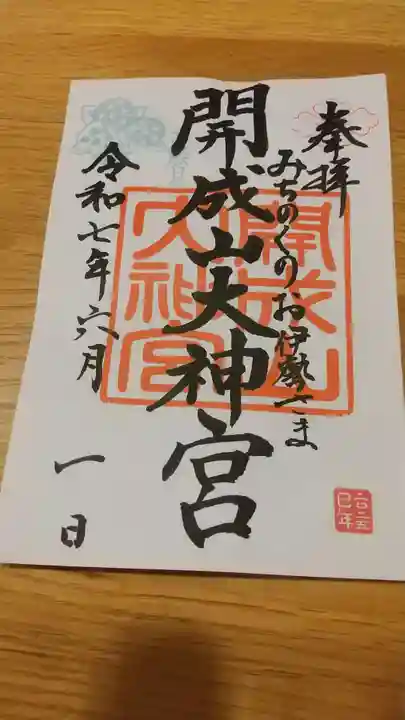 奉拝
みちのくのお伊勢さま
開成山大神宮
令和七年六月
一日
開成山
大神宮
二〇二五
巳年